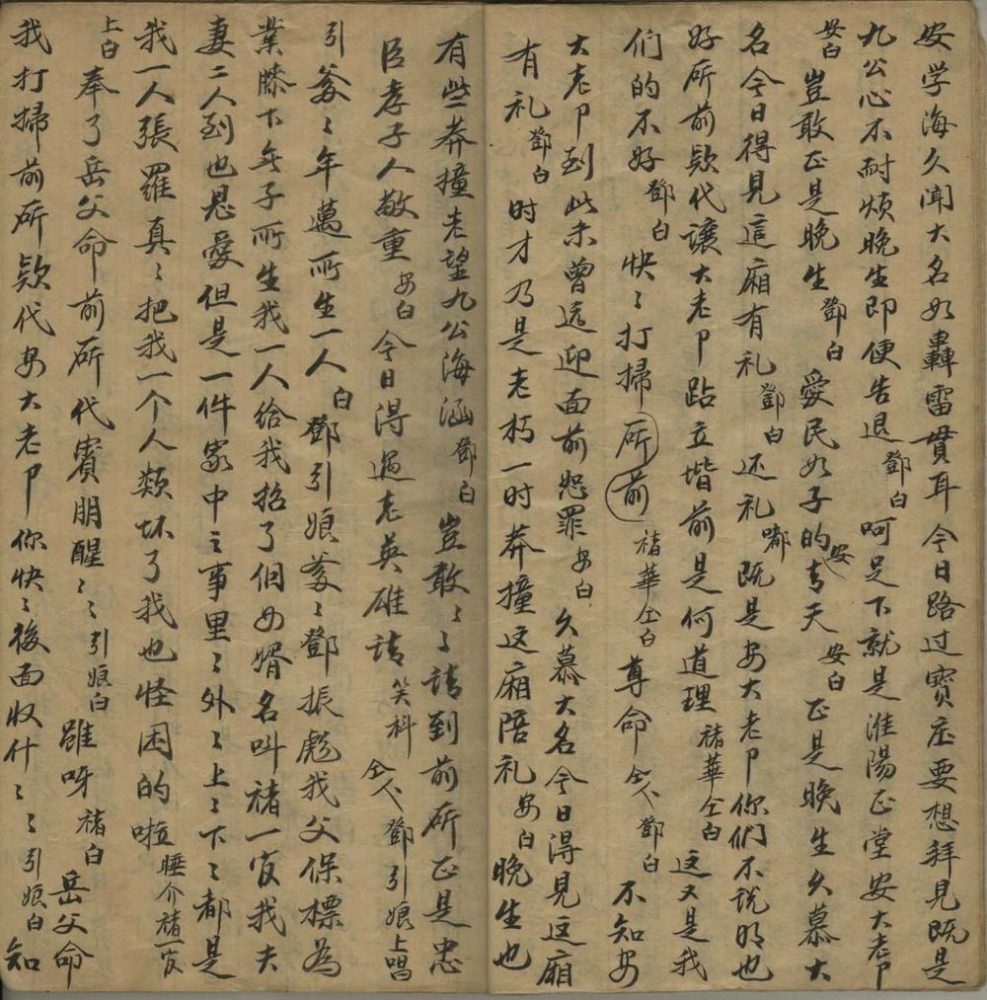 安学海久闻大名如轟雷貫耳今日路过寳庄要想拜見既是
九公心不耐烦晚生即便告退鄧白呵足下就是淮陽正堂安大老卩
安白豈敢正是晚生鄧白愛民如子的安青天安白正是晚生久慕大
名今日得見這廂有礼鄧白还礼嘟既是安大老卩你们不说明也
好所前欵代讓大老卩跕立堦前是何道理褚華仝白这又是我
们的不好鄧白快〻打掃所前褚華仝白尊命仝下鄧白不知安
大老卩到此未曾远迎面前恕罪安白久慕大名今日得見这廂
有礼鄧白时才乃是老朽一时莽撞这廂陪礼安白晚生也
有些莽撞老望九公海涵鄧白豈敢〻〻請到前所正是忠
臣孝子人敬重安白今日得遇老英雄請笑科仝下鄧引娘上唱
引爹〻年邁所生一人白鄧引娘爹〻鄧振彪我父保標為
業膝下無子所生我一人给我招了個女婿名叫褚一官我夫
妻二人到也恩愛但是一件家中之事里〻外〻上〻下〻都是
我一人張羅真〻把我一个人類坏了我也怪困的啦睡介褚一官
上白奉了岳父命前所代賓朋醒〻〻引娘白誰呀褚白岳父命
我打掃前所欵代安大老卩你快〻後面收什〻〻引娘白知